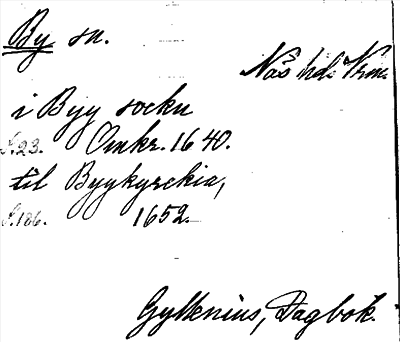 By sn.
Näs hd. Vrm.
i Byy sockn
S.23. Omkr. 1640.
til Byykyrckia,
S.186. 1652.
Gyllenius, Dagbok.